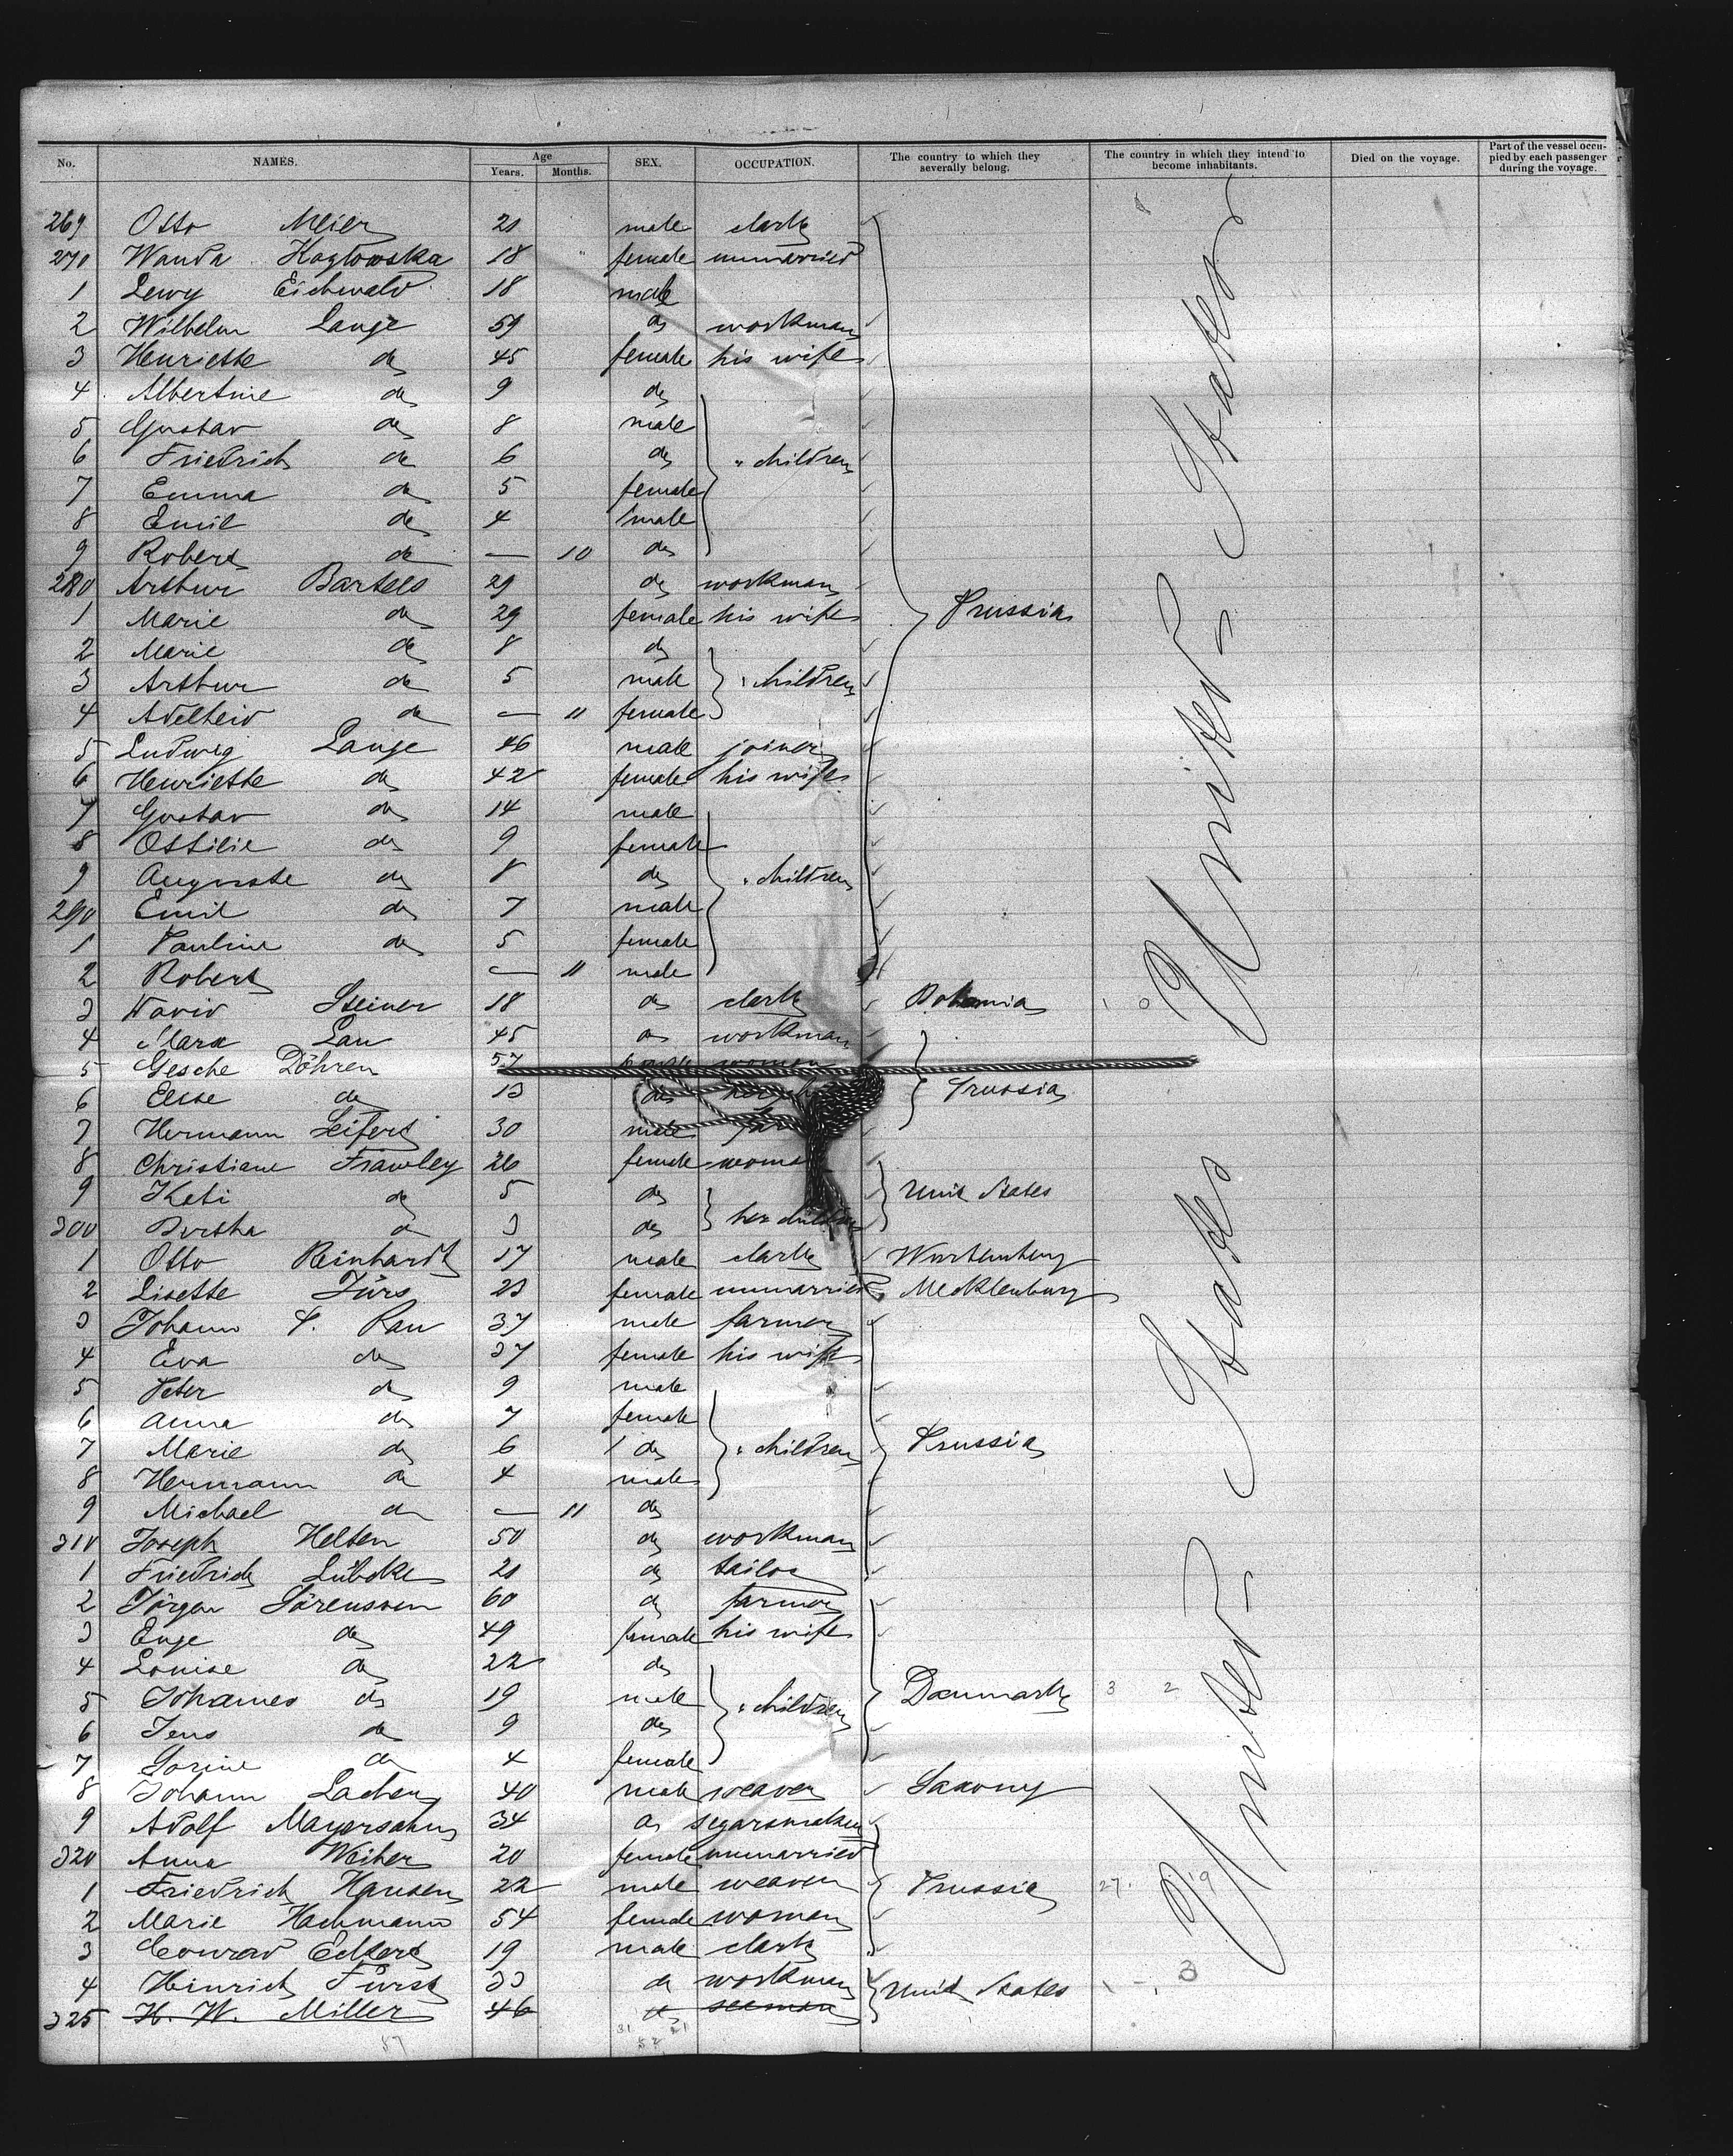 No. NAMES. Age Years. Months. SEX. OCCUPATION. The country to which they severally belong. The country in which they intend to become inhabitants. Died on the voyage. Part of the vessel occupied by each passenger during the voyage.
269 Otto Meier 21 male clerk
270 Wanda Kozlowska 18 female unmarried
1 Lewy Eichwald 18 male
2 Wilhelm Lange 59 do workman
3 Henriette do 45 female his wife
4 Albertine do 9 do
5 Gustav do 8 male
6 Friedrich do 6 do " children
7 Emma do 5 female
8 Emil do 4 male
9 Robert do — 10 do
280 Arthur Bartels 29 do workman
1 Marie do 29 female his wife Prussia
2 Marie do 8 do
3 Arthur do 5 male " children
4 Adelheid do — 11 female
5 Ludwig Lange 46 male joiner
6 Henriette do 42 female his wife
7 Gustav do 14 male
8 Ottilie do 9 female
9 Auguste do 8 do " children
290 Emil do 7 male
1 Pauline do 5 female
2 Robert — 11 male
3 David Steiner 18 do clerk Bohemia 1 0
4 Marx Lau 45 do workman
5 Gesche Döhren 57 female woman
6 Elise do 13 do her Prussia
7 Hermann Seifert 30 male
8 Christiane Frawley 26 female woman
9 Kati do 5 do Unit States
300 Bertha do 3 do her children
1 Otto Reinhardt 17 male clerk Wurtemberg
2 Lisette Fürs 23 female unmarried Mecklenburg
3 Johann P. Rau 37 male farmer
4 Eva do 37 female his wife
5 Peter do 9 male
6 Anna do 7 female
7 Marie do 6 do " children Prussia
8 Hermann do 4 male
9 Michael do — 11 do
310 Joseph Helten 50 do workman
1 Friedrich Lübcke 21 do tailor
2 Jörgen Sörensen 60 do farmer
3 Enge do 49 female his wife
4 Louise do 22 do
5 Johannes do 19 male " children Danmark 3 2
6 Jens do 9 do
7 Sorine do 4 female
8 Johann Lachen 40 male weaver Saxony
9 Adolf Mayersohn 34 do segarsmaker
320 Anna Weiher 20 female unmarried
1 Friedrich Hansen 22 male weaver Prussia 27. 19
2 Marie Hachmann 54 female woman
3 Conrad Eckert 19 male clerk
4 Heinrich Fürst 33 do workman Unit States 1 - 3
325 H. W. Miller 46 do seeman
United States
United States
57 31 52 21